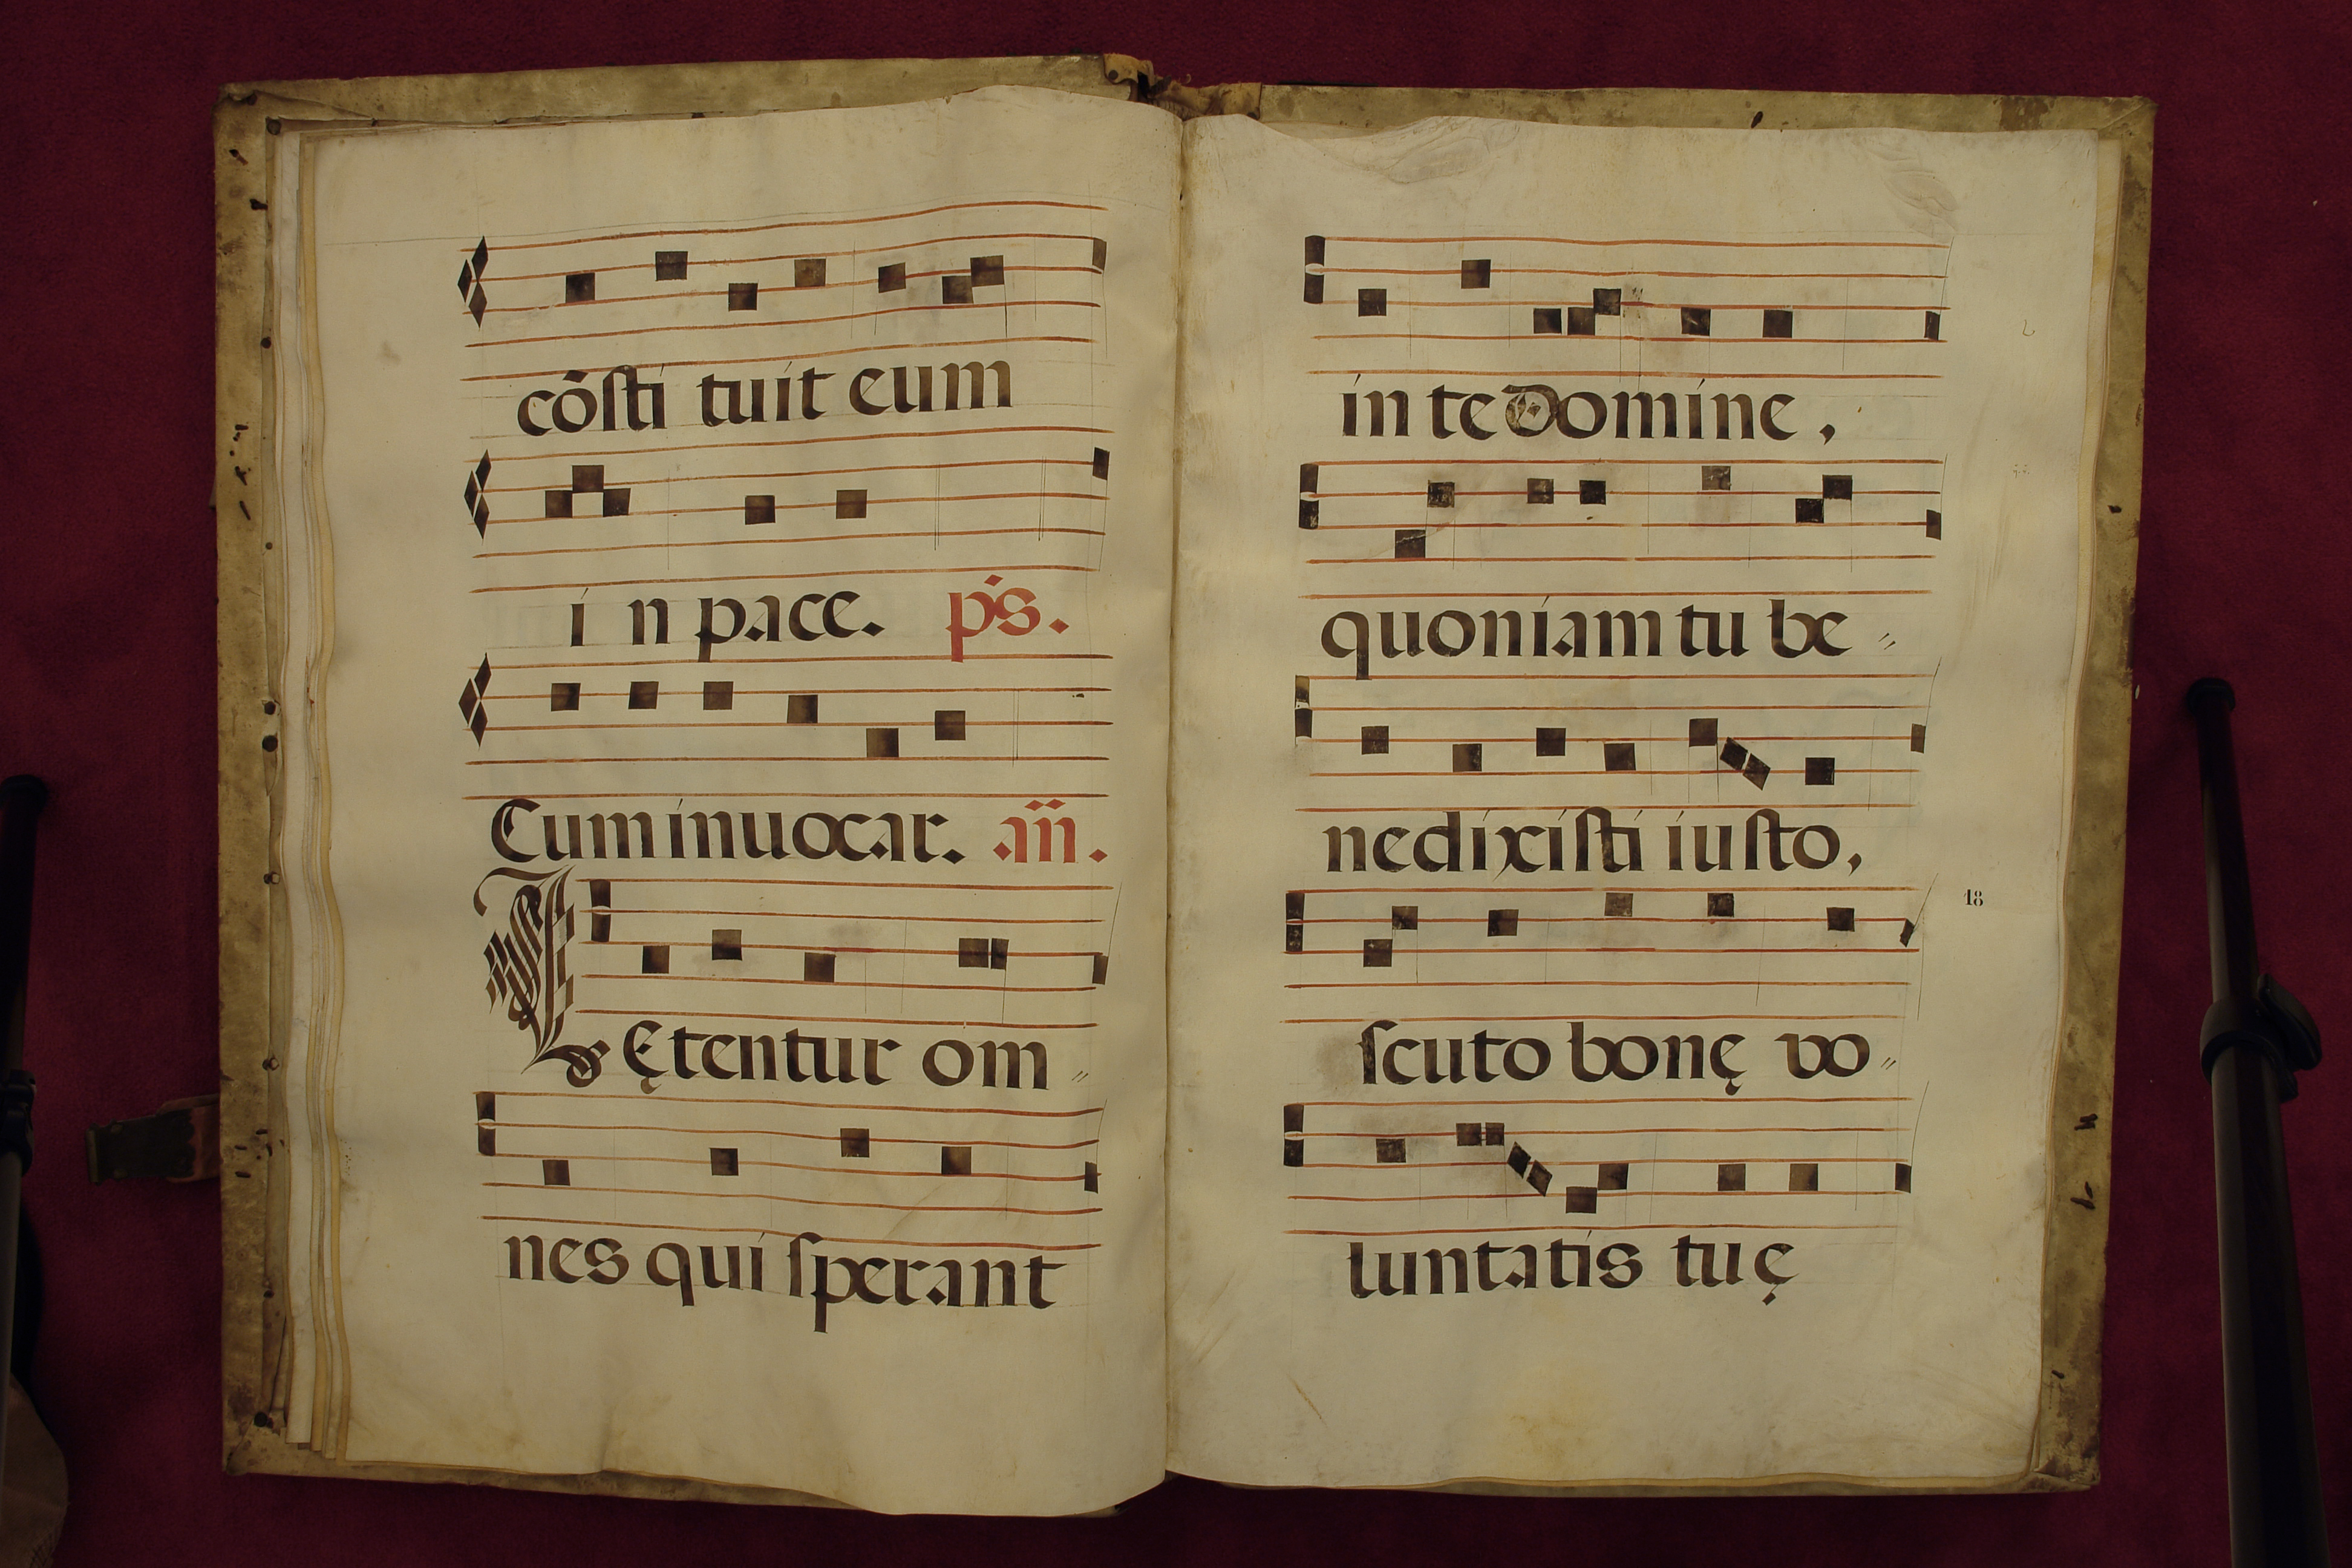 cōsti tuit eum
i n pace. p̄s.
Cum inuocar. añ.
L Ętentur om〃
nes qui sperant
in te Domine,
quoniam tu be〃
nedixisti iusto,
18
scuto bonę vo〃
luntatis tuę